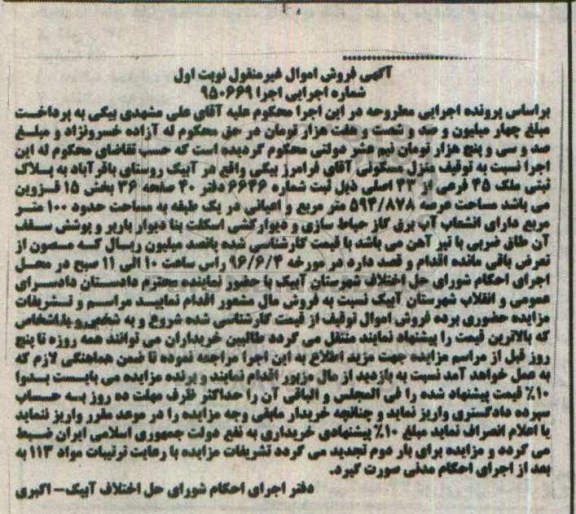 آگهی فروش اموال غیرمنقول نوبت اول
شماره اجرایی اجرا ۹۵۰۶۶۹
براساس پرونده اجرایی مطروحه در این اجرا محکوم علیه آقای علی مشهدی بیگی به پرداخت
مبلغ چهار میلیون و صد و شصت و هفت هزار تومان در حق محکوم له آزاده خسرونژاد و مبلغ
صد و سی و پنج هزار تومان نیم عشر دولتی محکوم گردیده است که حسب تقاضای محکوم له این
اجرا نسبت به توقیف منزل مسکونی آقای فرامرز بیگی واقع در آبیک روستای باقرآباد به پلاک
ثبتی ملک ۴۵ فرعی از ۴۳ اصلی ذیل ثبت شماره ۶۶۴۶ دفتر ۴۰ صفحه ۳۶ بخش ۱۵ قزوین
می باشد مساحت عرصه ۵۹۴/۸۷۸ متر مربع و اعیانی در یک طبقه به مساحت حدود ۱۰۰ متر
مربع دارای انشعاب آب برق گاز حیاط سازی و دیوارکشی اسکلت بنا دیوار باربر و پوشش سقف
آن طاق ضربی با تیر آهن می باشد با قیمت کارشناسی شده پانصد میلیون ریال که مصون از
تعرض باقی مانده اقدام و قصد دارد در مورخه ۹۶/۶/۴ رأس ساعت ۱۰ الی ۱۱ صبح در محل
اجرای احکام شورای حل اختلاف شهرستان آبیک با حضور نماینده محترم دادستان دادسرای
عمومی و انقلاب شهرستان آبیک نسبت به فروش مال مشعور اقدام نمایند مراسم و تشریفات
مزایده حضوری برده فروش اموال توقیف از قیمت کارشناسی شده شروع و به شخص و یا اشخاص
که بالاترین قیمت را پیشنهاد نمایند منتقل می گردد طالبین خریداران می توانند همه روزه تا پنج
روز قبل از مراسم مزایده جهت مزید اطلاع به این اجرا مراجعه نموده تا ضمن هماهنگی لازم که
به عمل خواهد آمد نسبت به بازدید از مال مزبور اقدام نمایند و برنده مزایده می بایست بدوا
۱۰٪ قیمت پیشنهاد شده را فی المجلس و الباقی آن را حداکثر ظرف مهلت ده روز به حساب
سپرده دادگستری واریز نماید و چنانچه خریدار مابقی وجه مزایده را در موعد مقرر واریز ننماید
یا اعلام انصراف نماید مبلغ ۱۰٪ پیشنهادی خریداری به نفع دولت جمهوری اسلامی ایران ضبط
می گردد و مزایده برای بار دوم تجدید می گردد تشریفات مزایده با رعایت ترتیبات مواد ۱۱۳ به
بعد از اجرای احکام مدنی صورت گیرد.
دفتر اجرای احکام شورای حل اختلاف آبیک – اکبری